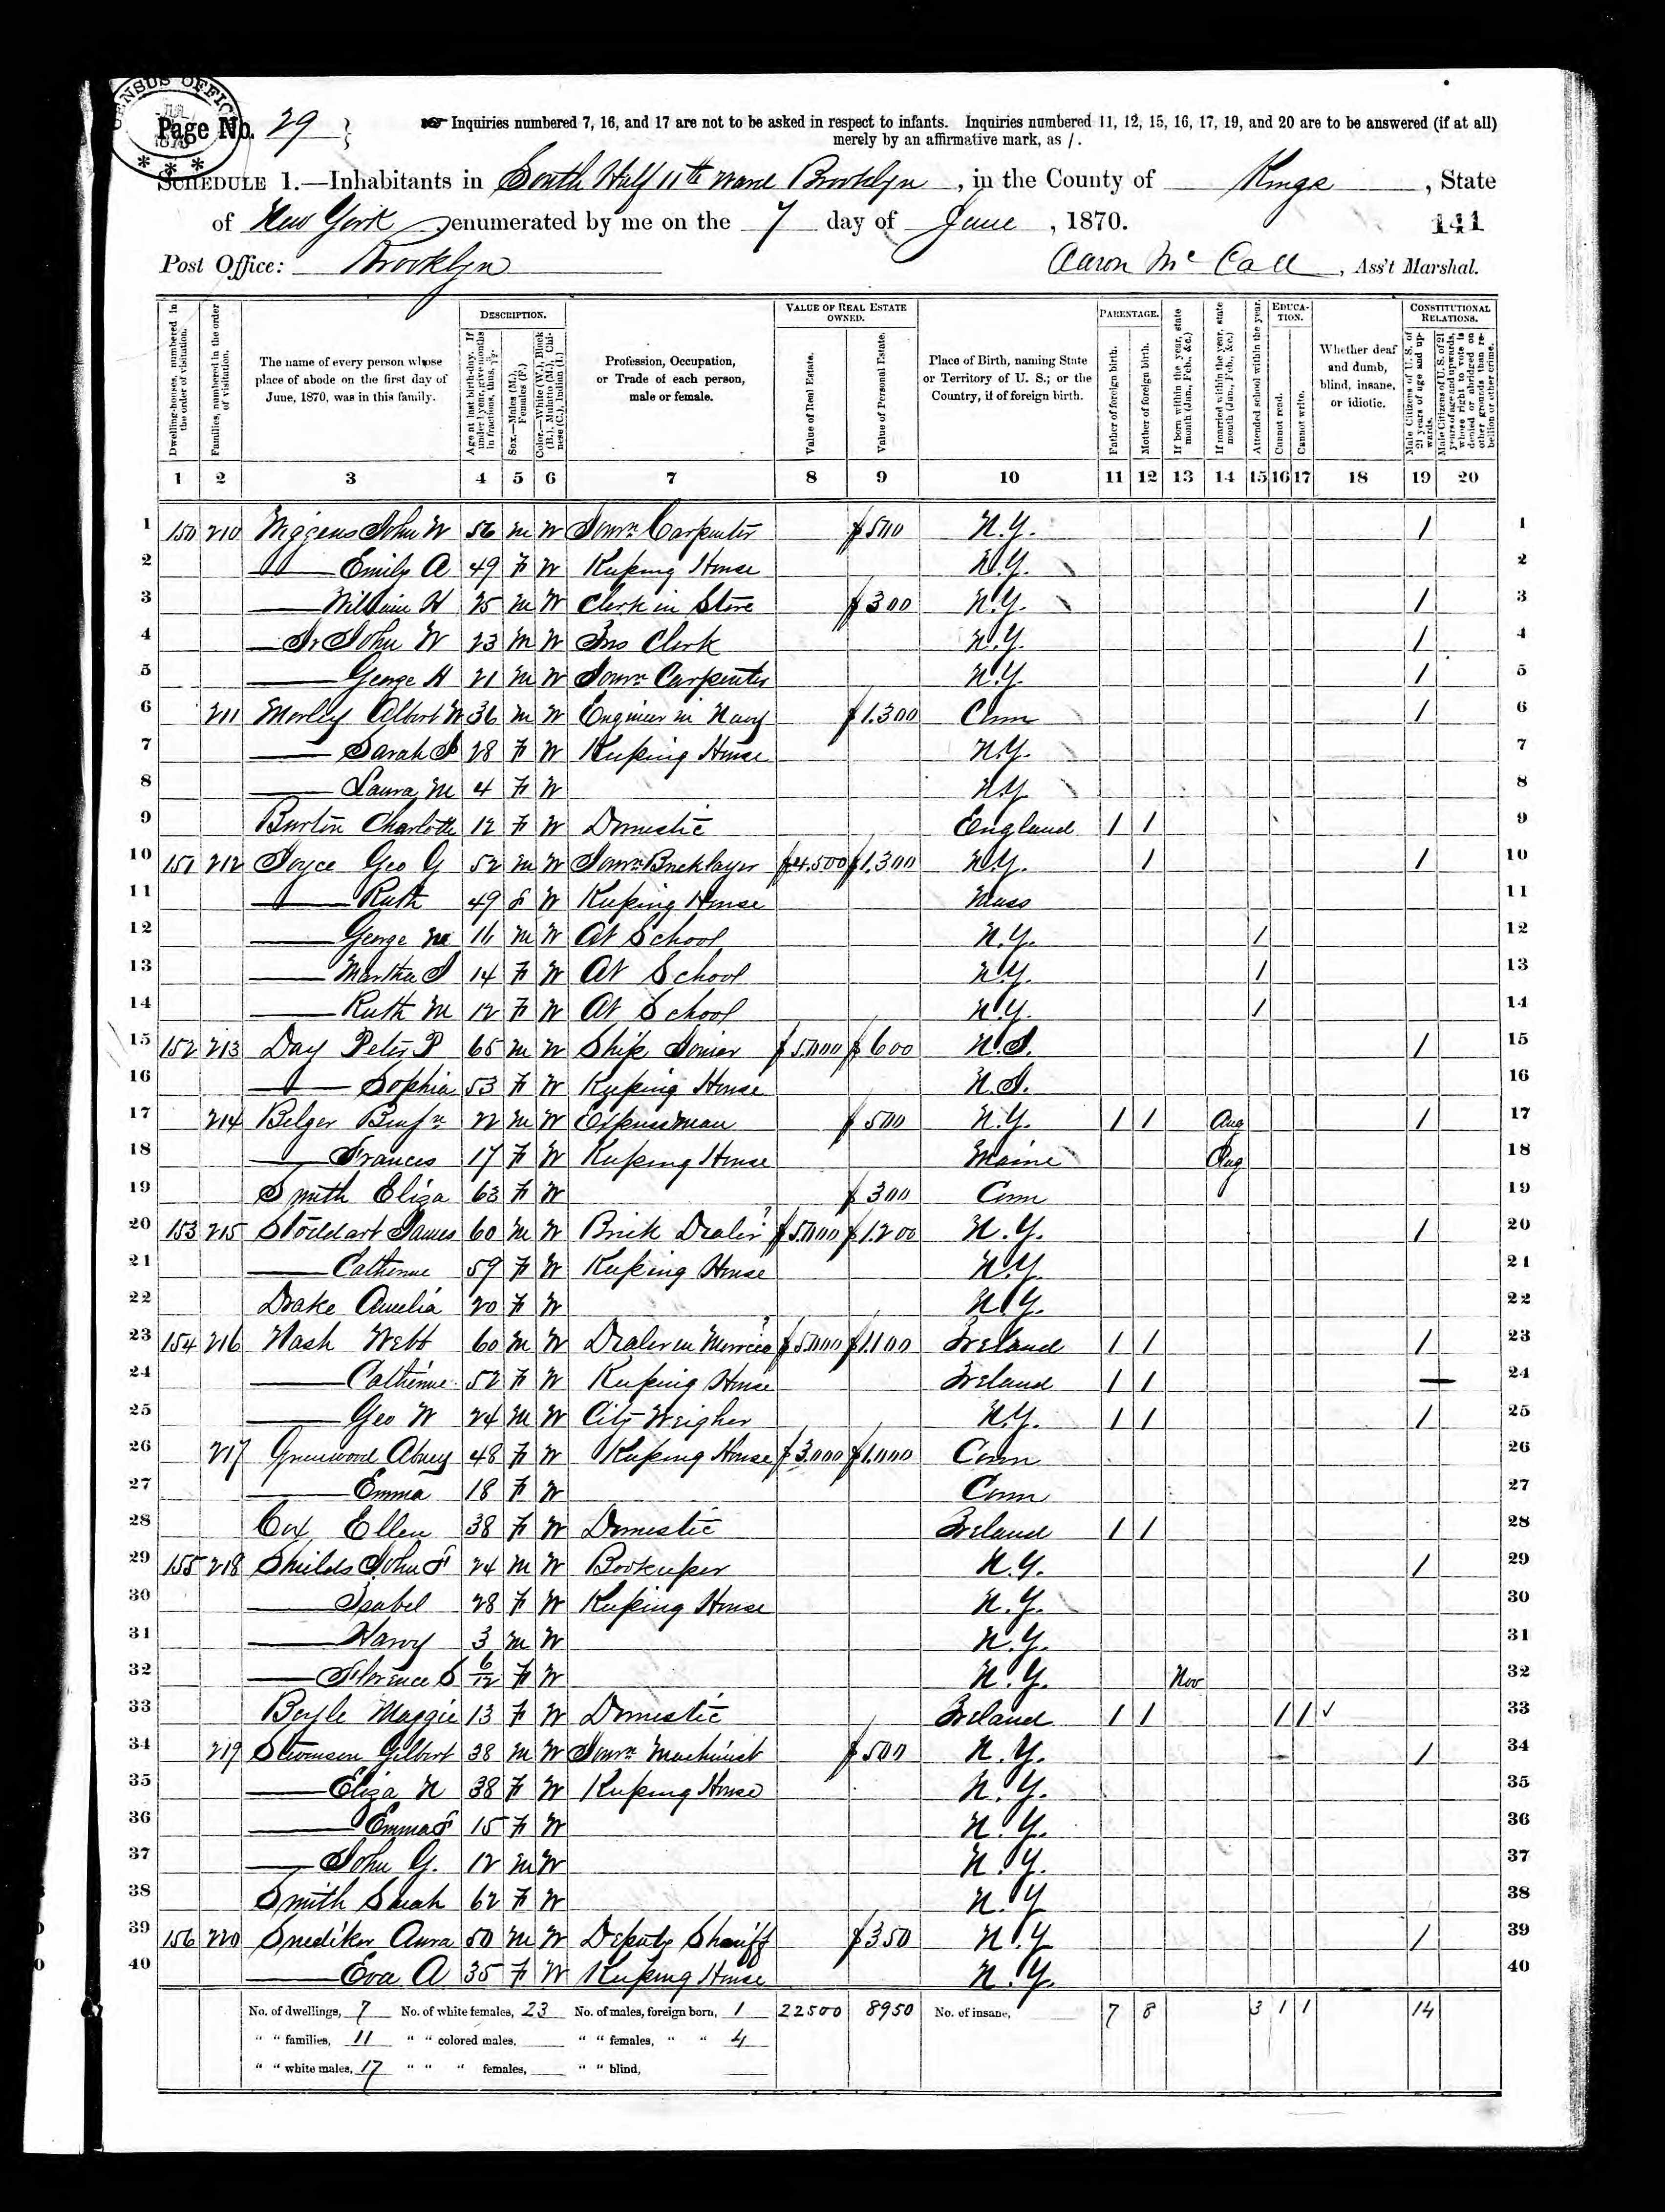 CENSUS OFFICE
Page No. 29
Inquiries numbered 7, 16, and 17 are not to be asked in respect to infants. Inquiries numbered 11, 12, 15, 16, 17, 19, and 20 are to be answered (if at all)
merely by an affirmative mark, as /.
SCHEDULE 1.—Inhabitants in South Half 11th Ward Brooklyn, in the County of Kings, State
of New York enumerated by me on the 7 day of June, 1870. 141
Post Office: Brooklyn Aaron McCall, Ass't Marshal.
Dwelling-houses, numbered in the order of visitation.
Families, numbered in the order of visitation.
The name of every person whose place of abode on the first day of June, 1870, was in this family.
DESCRIPTION.
Age at last birth-day. If under 1 year, give months in fractions, thus, 3/12.
Sex.—Males (M.), Females (F.)
Color.—White (W.), Black (B.), Mulatto (M.), Chinese (C.), Indian (I.)
Profession, Occupation, or Trade of each person, male or female.
VALUE OF REAL ESTATE OWNED.
Value of Real Estate.
Value of Personal Estate.
Place of Birth, naming State or Territory of U. S.; or the Country, if of foreign birth.
PARENTAGE.
Father of foreign birth.
Mother of foreign birth.
If born within the year, state month (Jan., Feb., &c.)
If married within the year, state month (Jan., Feb., &c.)
Attended school within the year.
EDUCATION.
Cannot read.
Cannot write.
Whether deaf and dumb, blind, insane, or idiotic.
CONSTITUTIONAL RELATIONS.
Male Citizens of U. S. of 21 years of age and upwards.
Male Citizens of U. S. of 21 years of age and upwards, whose right to vote is denied or abridged on other grounds than rebellion or other crime.
1 2 3 4 5 6 7 8 9 10 11 12 13 14 15 16 17 18 19 20
1 150 210 Wiggens John W 56 M W Jour. Carpenter $500 N.Y. / 1
2 — Emily A 49 F W Keeping House N.Y. 2
3 — William H 25 M W Clerk in Store $300 N.Y. / 3
4 — Jr John W 23 M W Ins Clerk N.Y. / 4
5 — George H 21 M W Jour. Carpenter N.Y. / 5
6 211 Morley Albert W 36 M W Engineer in Navy $1.300 Conn / 6
7 — Sarah J 28 F W Keeping House N.Y. 7
8 — Laura M 4 F W N.Y. 8
9 Burton Charlotte 12 F W Domestic England / / 9
10 151 212 Joyce Geo G 52 M W Jour. Bricklayer $4.500 $1.300 N.Y. / / 10
11 — Ruth 49 F W Keeping House Mass 11
12 — George M 16 M W At School N.Y. / 12
13 — Martha J 14 F W At School N.Y. / 13
14 — Ruth M 12 F W At School N.Y. / 14
15 152 213 Day Peter P 65 M W Ship Joiner $5.000 $600 N.J. / 15
16 — Sophia 53 F W Keeping House N.J. 16
17 214 Belger Benjn 22 M W Expressman $500 N.Y. / / Aug / 17
18 — Frances 17 F W Keeping House Maine Aug 18
19 Smith Eliza 63 F W $300 Conn 19
20 153 215 Stoddart James 60 M W Brick Dealer $5.000 $1.200 N.Y. / 20
21 — Catherine 59 F W Keeping House N.Y. 21
22 Drake Amelia 20 F W N.Y. 22
23 154 216 Nash Webb 60 M W Dealer in $5.000 $1.100 Ireland / / / 23
24 — Catherine 52 F W Keeping House Ireland / / — 24
25 — Geo W 24 M W City Weigher N.Y. / / / 25
26 217 Greenwood 48 F W Keeping House $3.000 $1.000 Conn 26
27 — Emma 18 F W Conn 27
28 Cox Ellen 38 F W Domestic Ireland / / 28
29 155 218 Shields John F 24 M W Bookeeper N.Y. / 29
30 — Isabel 28 F W Keeping House N.Y. 30
31 — Harry 3 M W N.Y. 31
32 — Florence S 6/12 F W N.Y. Nov 32
33 Boyle Maggie 13 F W Domestic Ireland / / / / ✓ 33
34 219 Gilbert 38 M W Jour. Machinist $500 N.Y. / 34
35 — Eliza N 38 F W Keeping House N.Y. 35
36 — Emma F 15 F W N.Y. 36
37 — John G. 12 M W N.Y. 37
38 Smith Sarah 62 F W N.Y 38
39 156 220 Snediker 50 M W Deputy Sheriff $350 N.Y / 39
40 — Eva A 35 F W Keeping House N.Y. 40
No. of dwellings, 7 No. of white females, 23 No. of males, foreign born, 1 22500 8950 No. of insane, 7 8 3 1 1 14
" " families, 11 " " colored males, " " females, " " 4
" " white males, 17 " " " females, " " blind,